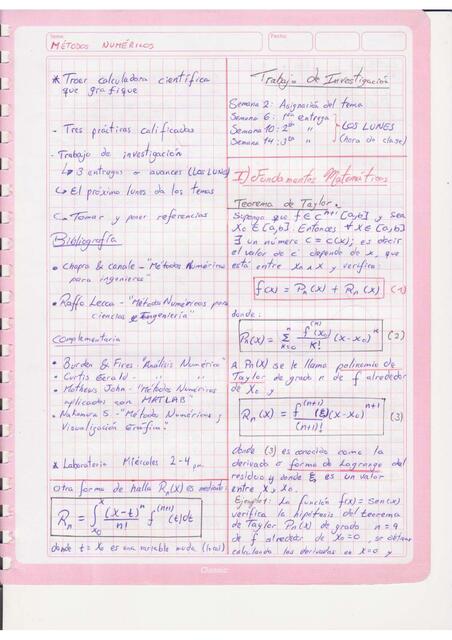 Tema:
MÉTODOS NUMÉRICOS
Fecha:
* Traer calculadora científica
que grafique
- Tres prácticas calificadas
- Trabajo de investigación
↳ 3 entregas o avances (LOS LUNES)
↳ El próximo lunes da los temas
↳ Tomar y poner referencias
Bibliografía
• Chapra & Canale - "Métodos Numéricos
para ingenieros"
• Raffo Lecca - "Métodos Numéricos para
ciencias e Ingeniería"
Complementaria
• Burden & Fires: "Análisis Numérico"
• Curtis Gerald - " "
• Mathews John - "Métodos Numéricos
aplicados con MATLAB"
• Nakamura S. - "Métodos Numéricos y
Visualización Gráfica."
* Laboratorio Miércoles 2-4 pm.
Otra forma de halla Rn(x) es mediante:
Rn = ∫_{x0}^{x} (x-t)^n / n! f^(n+1)(t)dt
donde t = x0 es una variable muda (local)
Trabajo de Investigación
Semana 2: Asignación del tema
Semana 6: 1ra entrega
Semana 10: 2da "
Semana 14: 3ra "
LOS LUNES
(hora de clase)
I) Fundamentos Matemáticos
Teorema de Taylor.
Suponga que f ∈ C^{n+1}[a,b] y sea
x0 ∈ [a,b]. Entonces ∀ x ∈ [a,b]
∃ un número c = c(x); es decir
el valor de c depende de x, que
está entre x0 ∧ x y verifica:
f(x) = Pn(x) + Rn(x) (1)
donde:
Pn(x) = Σ_{k=0}^{n} f^(k)(x0) / k! (x-x0)^k (2)
A Pn(x) se le llama polinomio de
Taylor de grado n de f alrededor
de x0 y
Rn(x) = f^(n+1)(ξ)(x-x0)^{n+1} / (n+1)! (3)
donde (3) es conocido como la
derivada o forma de Lagrange del
residuo y donde ξ es un valor
entre x, x0.
Ejemplo1: La función f(x) = sen(x)
verifica la hipótesis del teorema
de Taylor Pn(x) de grado n = 9
de f alrededor de x0 = 0, se obtiene
calculando las derivadas en x=0 y
Classic